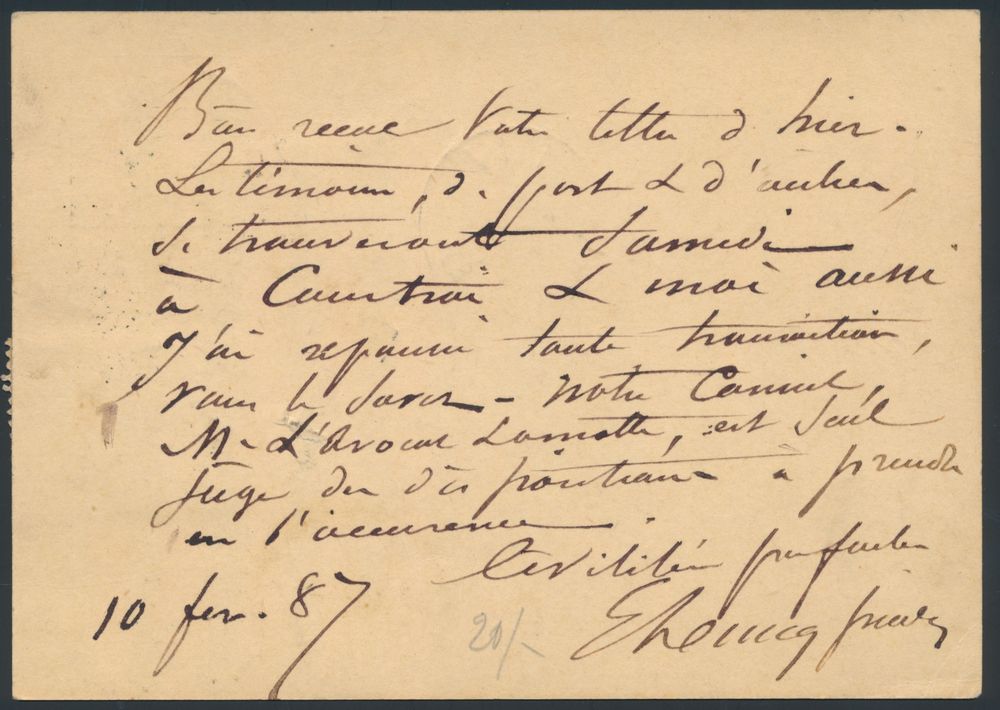 Bien reçu votre lettre d'hier.
Les témoins, de   & d'autres,
se trouveront Samedi
à Courtrai & moi aussi
J'ai repoussé toute transaction,
vous le savez - notre Conseil,
Mr L'Avocat Lamotte, est seul
juge des dispositions à prendre
en l'occurence.
Civilités parfaites
10 fev. 87
20/-